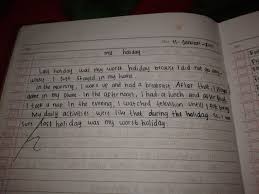 my holiday
Last holiday was my worst holiday because I did not go any
where. I just stayed in my home.
In the morning, I woke up and had a breakfast. After that I played
game in my phone. In the afternoon, I had a lunch and after that
I took a nap. In the evening, I watched television until I felt
My daily activities were like that during the holiday. So, I was
sure last holiday was my worst holiday.